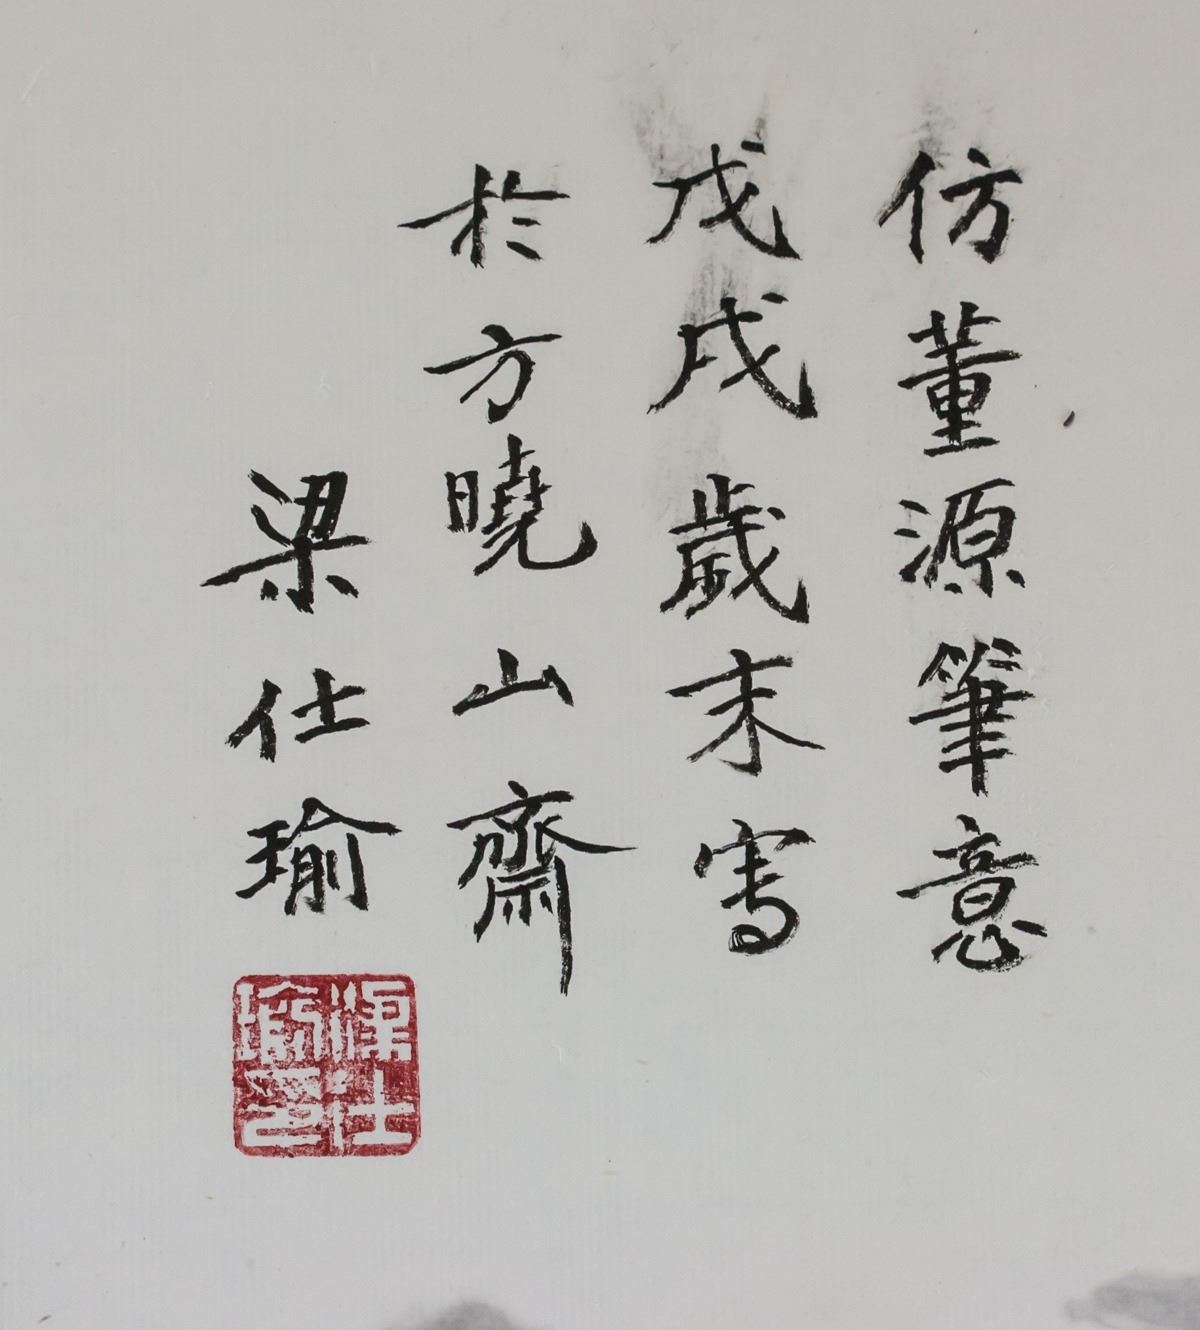 仿董源筆意
戊戌歲末寫
於方曉山齋
梁仕瑜
梁仕
瑜印